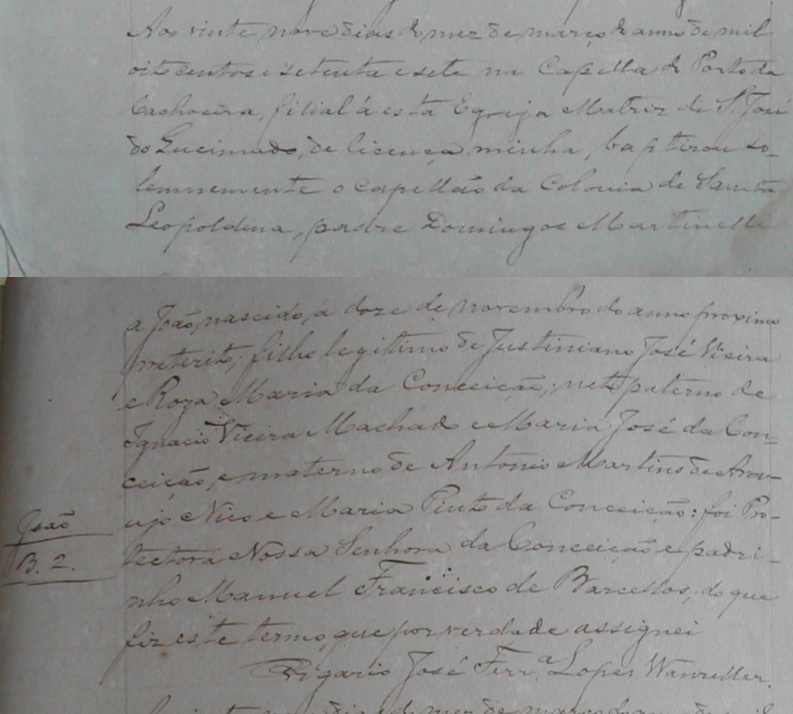 Aos vinte nove dias do mez de março do anno de mil
oito centos e setenta e sete na Capella do Porto da
Cachoeira, filial á esta Egreja Matriz de S. José
do Queimado, de licença minha, baptizou so-
lemnemente o capellão da Colonia de Santa
Leopoldina, padre Domingos Martinelli
a João, nascido, a doze de novembro do anno proximo
preterito; filho legitimo de Justiniano José Vieira
e Roza Maria da Conceição; neto paterno de
Ignacio Vieira Machado e Maria José da Con-
ceição, e materno de Antonio Martins de Arau-
ujo Nico e Maria Pinto da Conceição: foi Pro-
João
tectora Nossa Senhora da Conceição e padri-
B. 2.
nho Manuel Francisco de Barcellos, do que
fiz este termo, que por verdade assignei
Vigario José Ferr.ª Lopes Wanzeller.